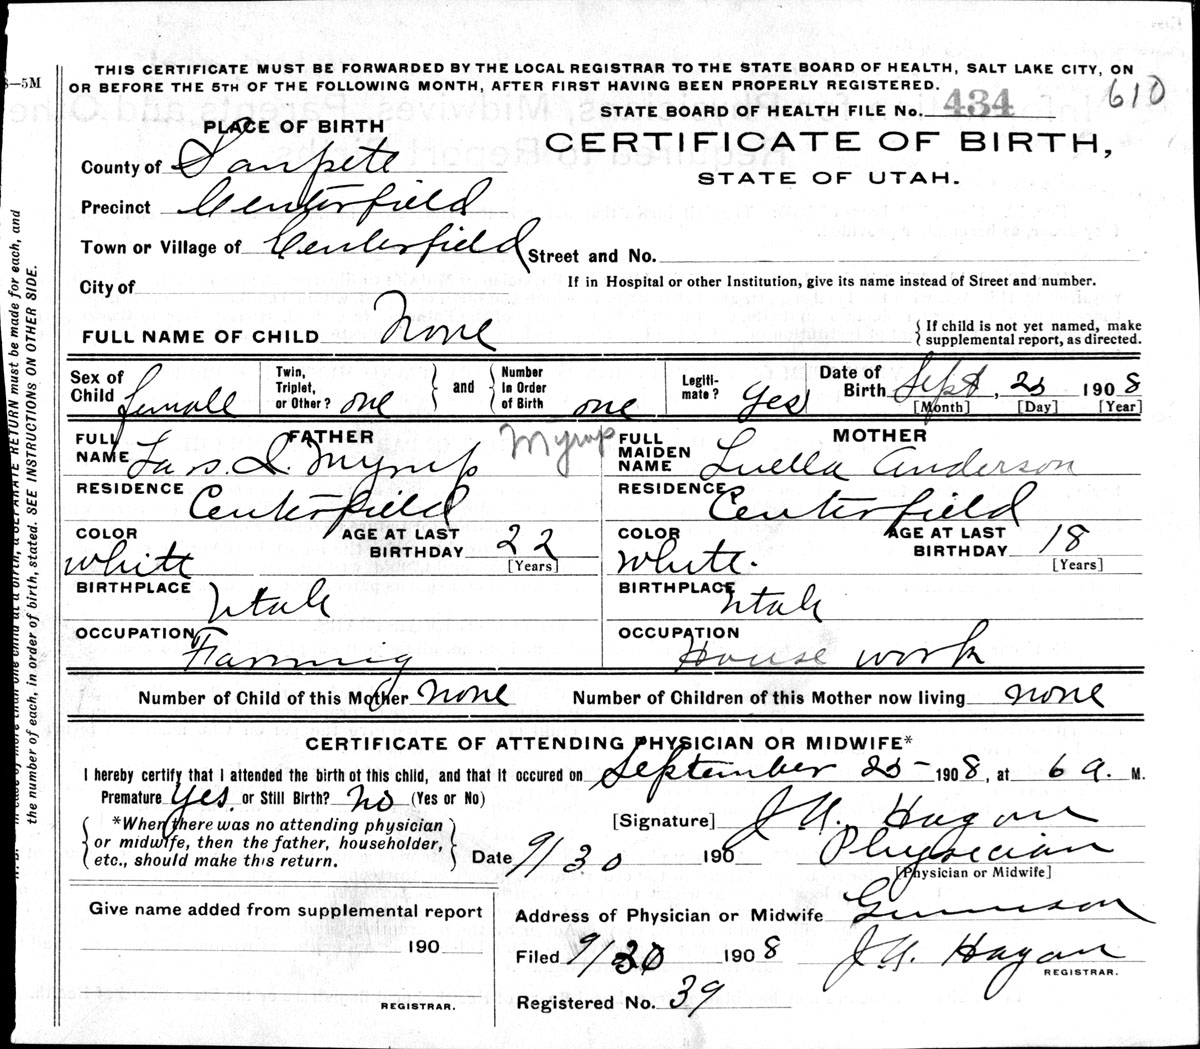 3—5M
THIS CERTIFICATE MUST BE FORWARDED BY THE LOCAL REGISTRAR TO THE STATE BOARD OF HEALTH, SALT LAKE CITY, ON
OR BEFORE THE 5TH OF THE FOLLOWING MONTH, AFTER FIRST HAVING BEEN PROPERLY REGISTERED.
610
STATE BOARD OF HEALTH FILE No. 434
PLACE OF BIRTH
CERTIFICATE OF BIRTH,
STATE OF UTAH.
County of Sanpete
Precinct Centerfield
Town or Village of Centerfield Street and No.
City of If in Hospital or other Institution, give its name instead of Street and number.
FULL NAME OF CHILD None { If child is not yet named, make
supplemental report, as directed.
Sex of
Child female
Twin,
Triplet,
or Other? one } and { Number
in Order
of Birth one
Legiti-
mate? yes
Date of
Birth Sept, 25 1908
[Month] [Day] [Year]
FATHER
FULL
NAME Lars. D. Myrup
Myrup
RESIDENCE Centerfield
COLOR white
AGE AT LAST
BIRTHDAY 22
[Years]
BIRTHPLACE Utah
OCCUPATION Farming
MOTHER
FULL
MAIDEN
NAME Luella Anderson
RESIDENCE Centerfield
COLOR White.
AGE AT LAST
BIRTHDAY 18
[Years]
BIRTHPLACE Utah
OCCUPATION House work
Number of Child of this Mother none Number of Children of this Mother now living none
CERTIFICATE OF ATTENDING PHYSICIAN OR MIDWIFE*
I hereby certify that I attended the birth of this child, and that it occured on September 25- 1908, at 6 a. M.
Premature yes. or Still Birth? no (Yes or No)
{ *When there was no attending physician
or midwife, then the father, householder,
etc., should make this return. }
[Signature] J A. Hagan
Date 9/30 190 Physician
[Physician or Midwife]
Give name added from supplemental report
190
REGISTRAR.
Address of Physician or Midwife Gunnison
Filed 9/30 1908 J A. Hagan
REGISTRAR.
Registered No. 39
In case of more than one child at a birth, a SEPARATE RETURN must be made for each, and
the number of each, in order of birth, stated. SEE INSTRUCTIONS ON OTHER SIDE.